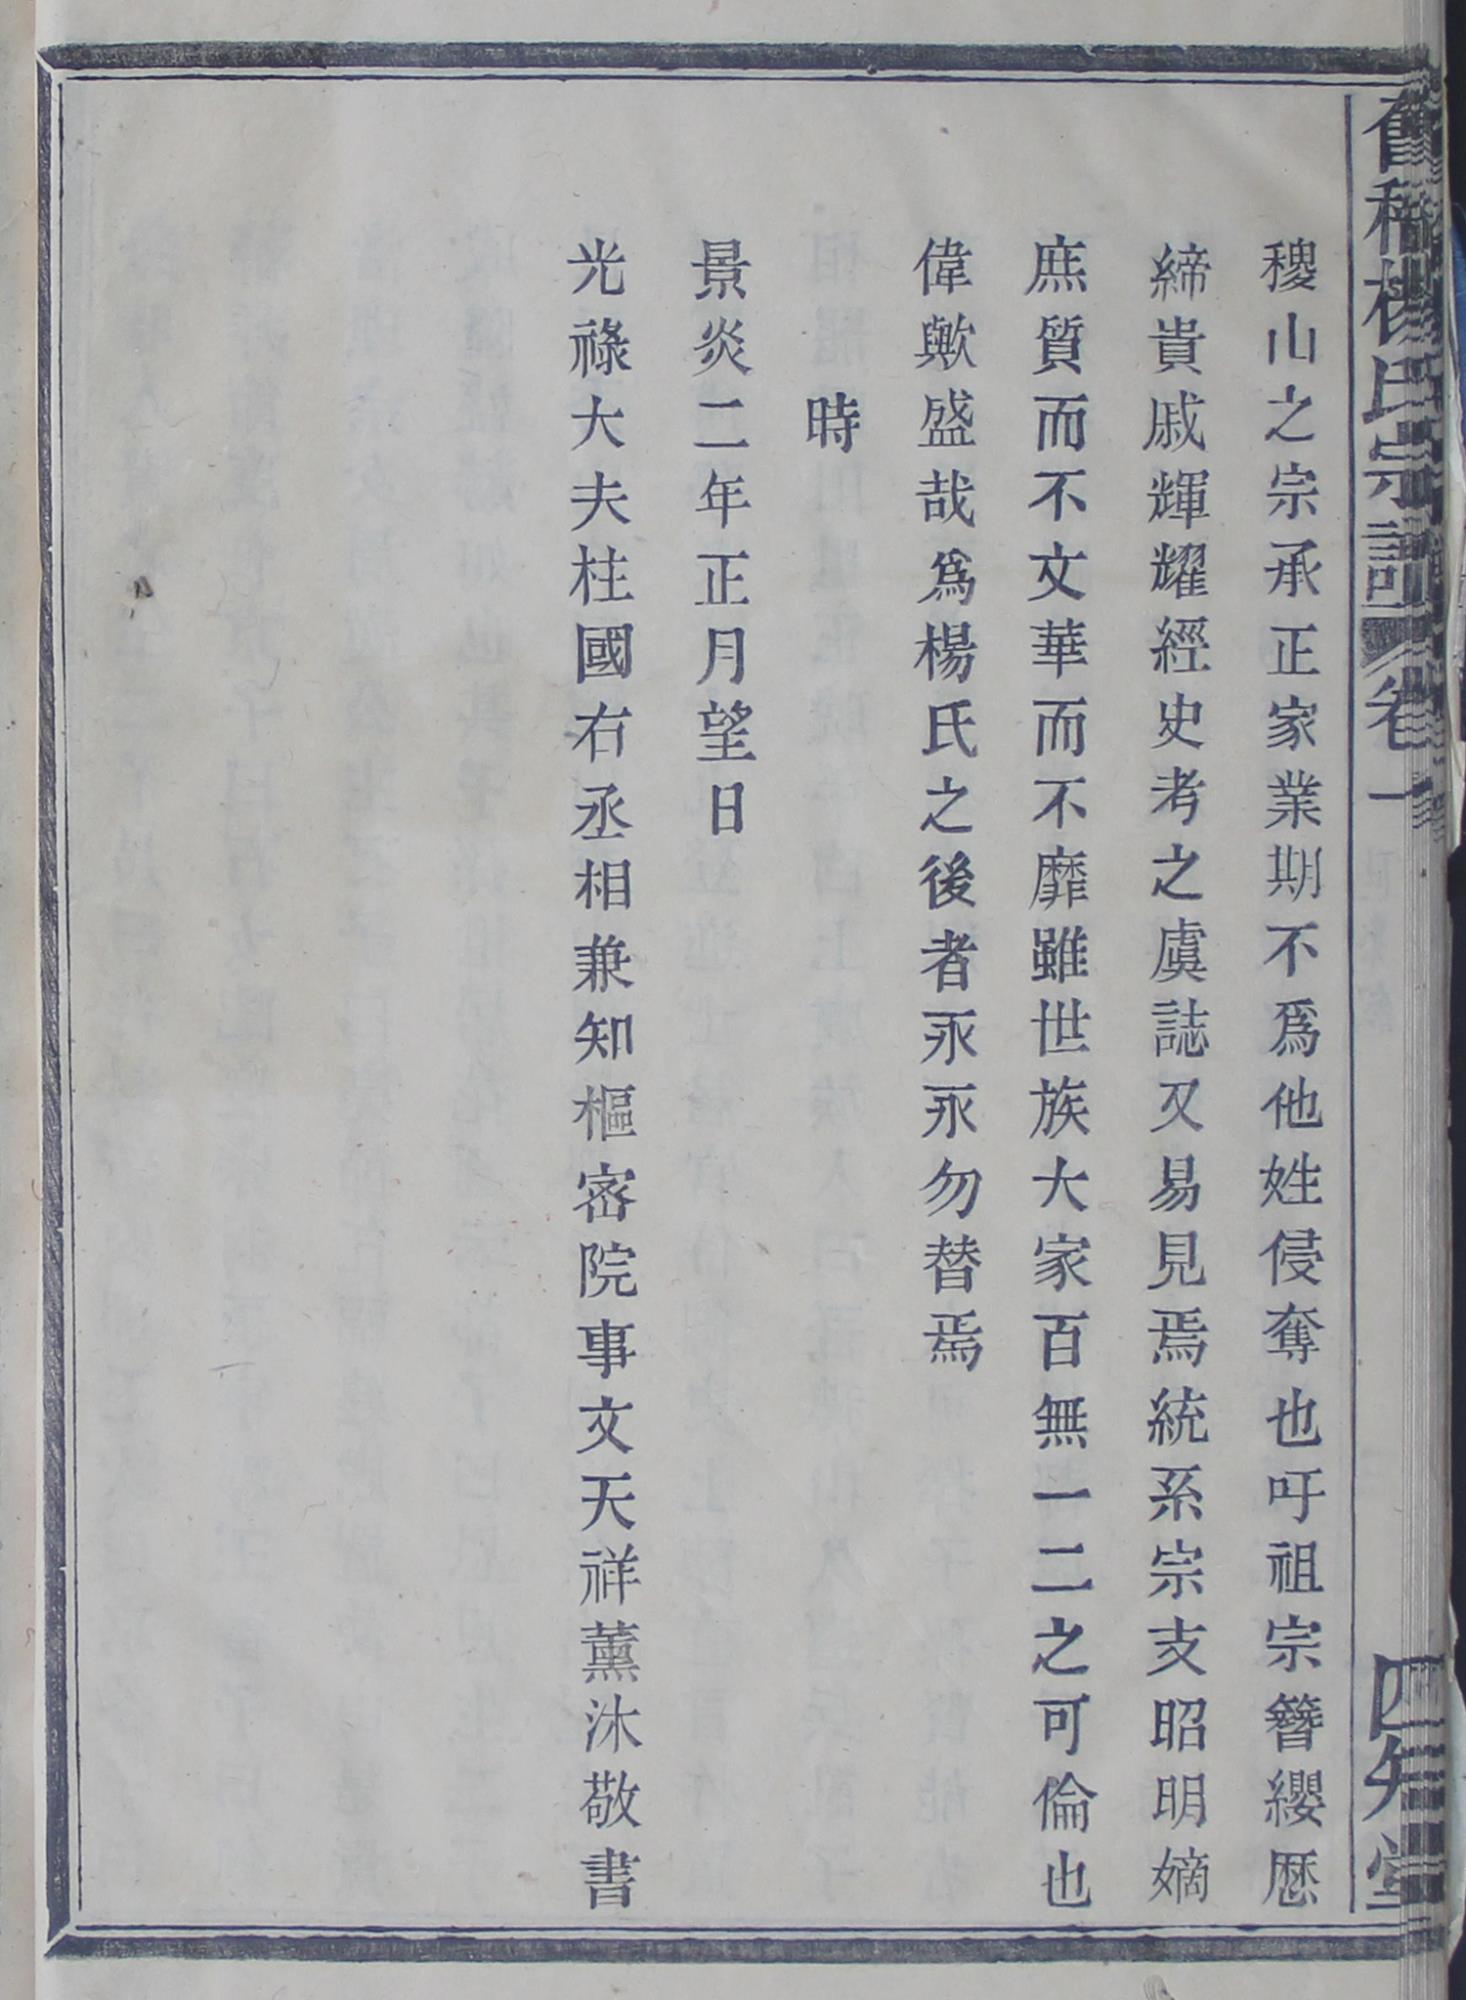 稷山之宗承正家業期不爲他姓侵奪也吁祖宗簪纓歷
締貴戚輝耀經史考之虞誌又易見焉統系宗支昭明嫡
庶質而不文華而不靡雖世族大家百無一二之可倫也
偉歟盛哉爲楊氏之後者永永勿替焉
時
景炎二年正月望日
光祿大夫柱國右丞相兼知樞密院事文天祥薰沐敬書
楊氏宗譜 卷一
四知堂